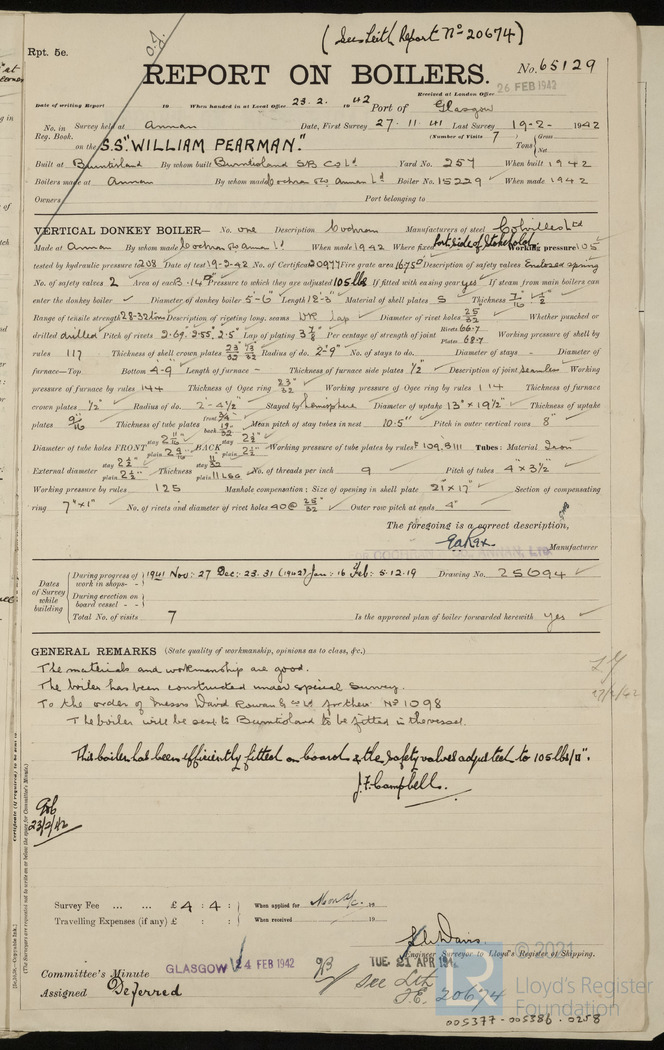 (See Leith Report No 20674)
Rpt. 5e.
REPORT ON BOILERS.
No. 65129
Received at London Office 26 FEB 1942
Date of writing Report 19 When handed in at Local Office 23. 2. 1942 Port of Glasgow
No. in Reg. Book. Survey held at Annan Date, First Survey 27. 11. 41 Last Survey 19-2- 1942
(Number of Visits 7)
on the S.S. "WILLIAM PEARMAN." Tons { Gross Net
Built at Burntisland By whom built Burntisland S.B. Co Ld Yard No. 257 When built 1942
Boilers made at Annan By whom made Cochran & Co Annan Ld Boiler No. 15229 When made 1942
Owners Port belonging to
VERTICAL DONKEY BOILER— No. one Description Cochran Manufacturers of steel Colvilles Ltd
Made at Annan By whom made Cochran & Co Annan Ld When made 1942 Where fixed Port side of Stokehold Working pressure 105
tested by hydraulic pressure to 208 Date of test 19-2-42 No. of Certificate 20977 Fire grate area Description of safety valves Enclosed spring
No. of safety valves 2 Area of each Pressure to which they are adjusted 105 lbs If fitted with easing gear yes If steam from main boilers can
enter the donkey boiler Diameter of donkey boiler 5-6" Length 12-3" Material of shell plates S Thickness
Range of tensile strength 28-32 tons Description of riveting long. seams lap Diameter of rivet holes 25/32 Whether punched or
drilled drilled Pitch of rivets 2.69. 2.55" 2.5" Lap of plating Per centage of strength of joint Rivets 66.7 Plates 68.7 Working pressure of shell by
rules 117 Thickness of shell crown plates Radius of do. 2'-9" No. of stays to do. - Diameter of stays - Diameter of
furnace—Top. Bottom 4-9 Length of furnace - Thickness of furnace side plates 1/2" Description of joint seamless Working
pressure of furnace by rules 144 Thickness of Ogee ring 23/32" Working pressure of Ogee ring by rules 114 Thickness of furnace
crown plates 1/2" Radius of do. 2'-4 1/2" Stayed by hemisphere Diameter of uptake 13" x 19 1/2" Thickness of uptake
plates 9/16" Thickness of tube plates front 3/4" back 19/32" Mean pitch of stay tubes in nest 10.5" Pitch in outer vertical rows 8"
Diameter of tube holes FRONT stay plain BACK stay plain Working pressure of tube plates by rules F 109. B 111 Tubes: Material Iron
External diameter stay 2 1/2" plain 2 1/2" Thickness stay plain 11 LSG No. of threads per inch 9 Pitch of tubes 4 x 3 1/2"
Working pressure by rules 125 Manhole compensation: Size of opening in shell plate 21" x 17" Section of compensating
ring 7" x 1" No. of rivets and diameter of rivet holes 40 @ 25/32" Outer row pitch at ends 4"
The foregoing is a correct description,
Manufacturer
Dates of Survey while building
During progress of work in shops - - 1941 Nov: 27 Dec: 23. 31 (1942) Jan: 16 Feb: 5. 12. 19 Drawing No. 25694
During erection on board vessel - -
Total No. of visits 7 Is the approved plan of boiler forwarded herewith yes
GENERAL REMARKS (State quality of workmanship, opinions as to class, &c.)
The materials and workmanship are good.
The boiler has been constructed under special survey.
To the order of Messrs David Rowan & Co Ld for their No 1098
The boiler will be sent to Burntisland to be fitted in the vessel.
This boiler has been efficiently fitted on board & the safety valves adjusted to 105 lbs/□".
J. F. Campbell.
23/2/42
Survey Fee ... ... £ 4 : 4 : When applied for 19
Travelling Expenses (if any) £ : : When received 19
Engineer Surveyor to Lloyd's Register of Shipping.
Committee's Minute GLASGOW 24 FEB 1942 TUE. 21 APR 194
Assigned Deferred see Lth F.E. 20674
© 2021
Lloyd's Register
Foundation
005377-005386-0258